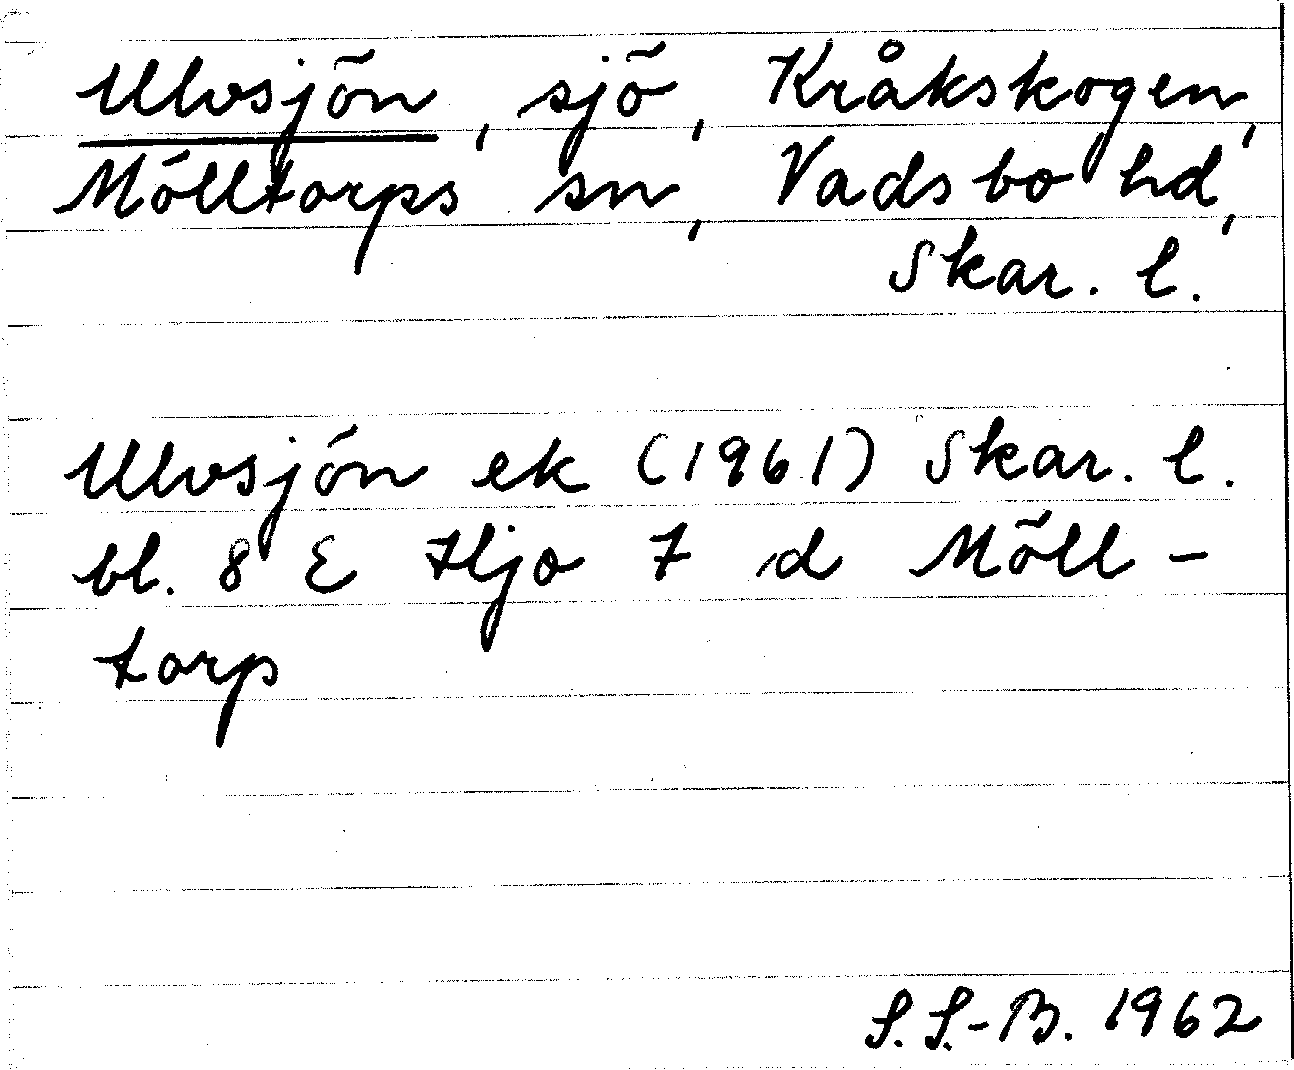 Ulvsjön, sjö, Kråkskogen,
Mölltorps sn, Vadsbo hd,
Skar. l.
Ulvsjön ek (1961) Skar. l.
bl. 8 E Hjo 7 d Möll-
torp
S. S.-B. 1962